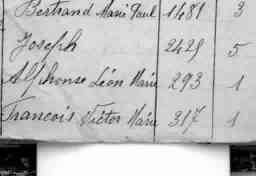 Bertrand Marie Paul 1481 3
Joseph 2429 5
Alphonse Léon Marie 293 1
Francois Victor Marie 317 1